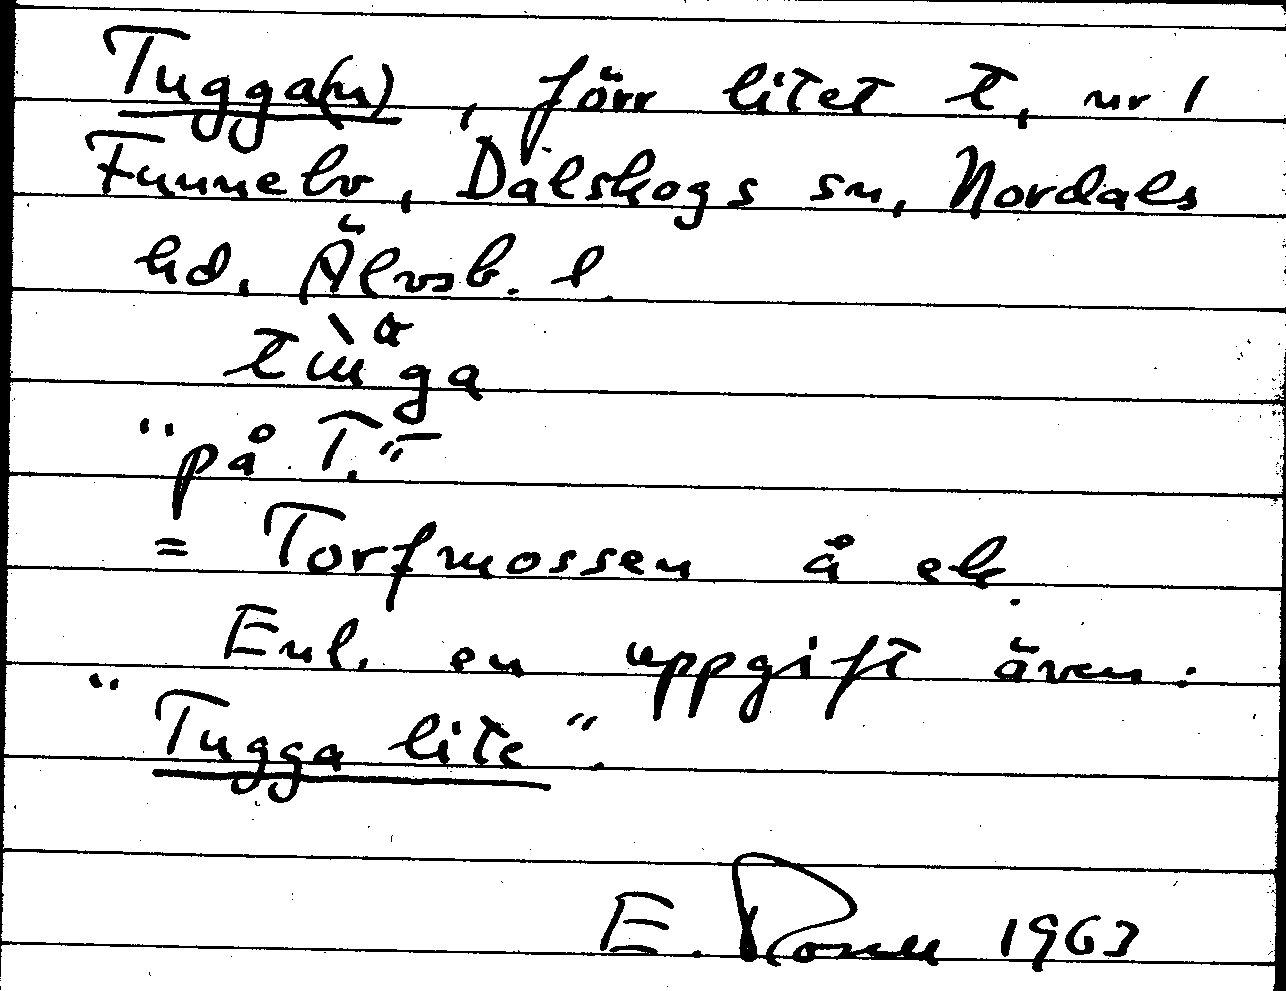 Tugga(n), förr litet t, nr 1
Funnebo, Dalskogs sn, Nordals
hd, Älvsb. l.
"på T."
= Torfmossen å ek.
Enl. en uppgift även:
"Tugga lite".
E. 1963